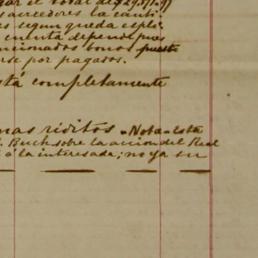 gar el total de $29.87.97
acreedores la canti
segun queda espli
cuenta depend pues
ncionados bonos puesto
rse por pagados.
stá completamente
mas riditos - Nota - esta
Buch sobre la accion del Real
á la interesada; no ya su